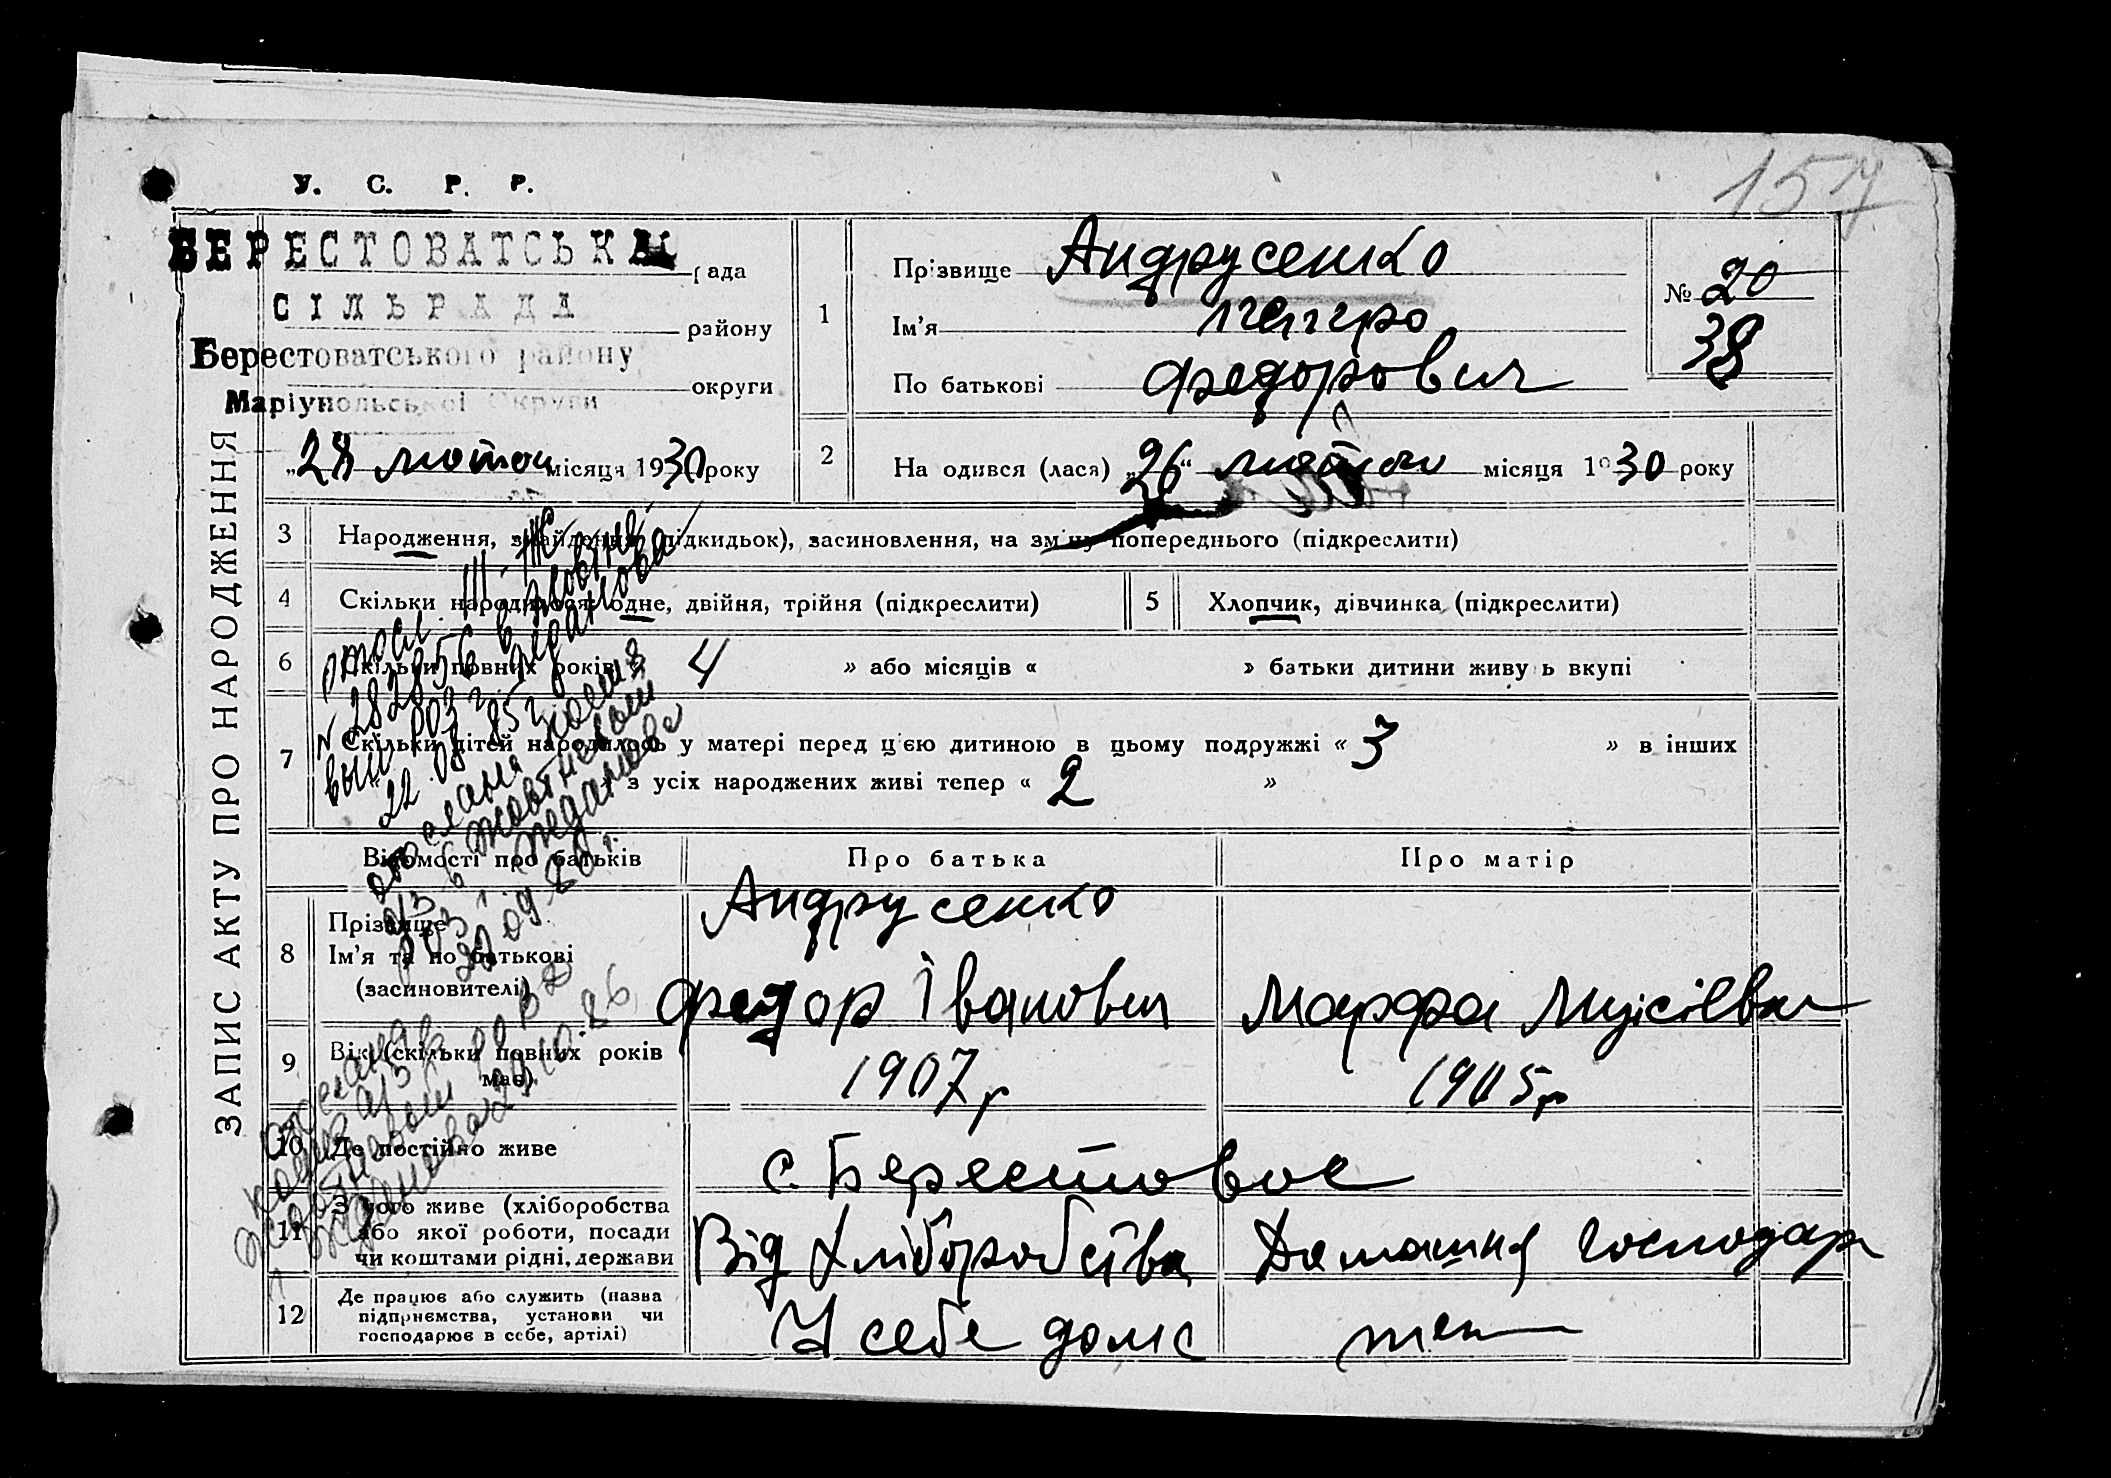 157
У. С. Р. Р.
БЕРЕСТОВАТСЬКА
рада
СІЛЬРАДА
району
Берестоватського району
округи
Маріупольської Округи
„28 лютого місяця 1930 року
ЗАПИС АКТУ ПРО НАРОДЖЕННЯ
1
Прізвище Андрусенко
Ім'я петро
По батькові Федорович
№ 20
38
2 На одився (лася) „26“ лютого місяця 1930 року
3 Народження, знайдення (підкидьок), засиновлення, на зміну попереднього (підкреслити)
4 Скільки народилося: одне, двійня, трійня (підкреслити)
5 Хлопчик, дівчинка (підкреслити)
6 Скільки повних років « 4 » або місяців « » батьки дитини живу ь вкупі
7 Скільки дітей народилось у матері перед цією дитиною в цьому подружжі « 3 » в інших
з усіх народжених живі тепер « 2 »
III-ЖС
№ 282856 в
22 03 85 г
выслана копия
20 09-80 г.
29.10.86
Відомості про батьків
Про батька
Про матір
8 Прізвище
Ім'я та по батькові
(засиновителі)
Андрусенко
Федор Іванович
Марфа Мусіївна
9 Вік (скільки повних років має)
1907 р
1905 р
10 Де постійно живе
с. Берестовое
11 З чого живе (хліборобства
або якої роботи, посади
чи коштами рідні, держави
Від хліборобства
Домашня господар
12 Де працює або служить (назва
підприємства, установи чи
господарює в себе, артілі)
У себе дома
теж